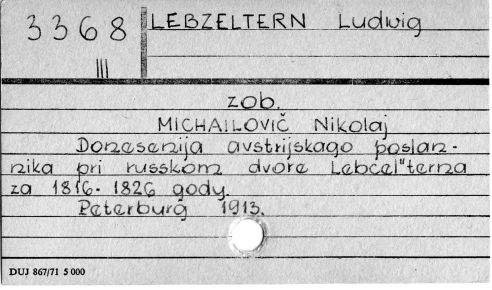 3368 LEBZELTERN Ludwig
III
zob.
MICHAILOVIČ Nikolaj
Donesenija avstrijskago poslan-
nika pri russkom dvore Lebcel"terna
za 1816-1826 gody.
Peterburg 1913.
DUJ 867/71 5 000